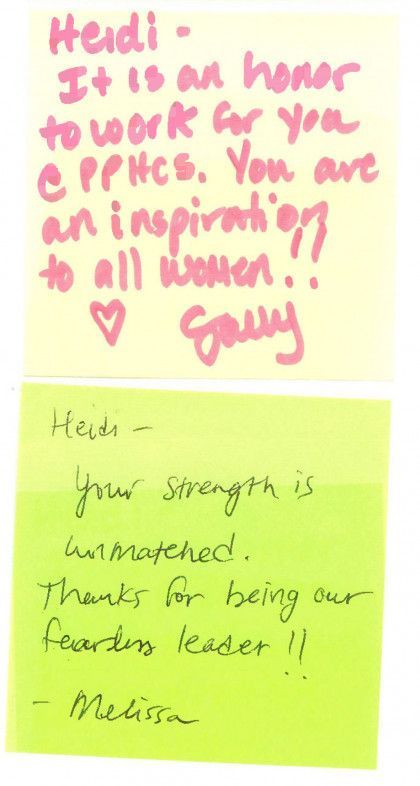 Heidi -
It is an honor
to work for you
@ PPHCS. You are
an inspiration
to all women!!
♡ Sally
Heidi -
Your strength is
unmatched.
Thanks for being our
fearless leader!!
- Melissa